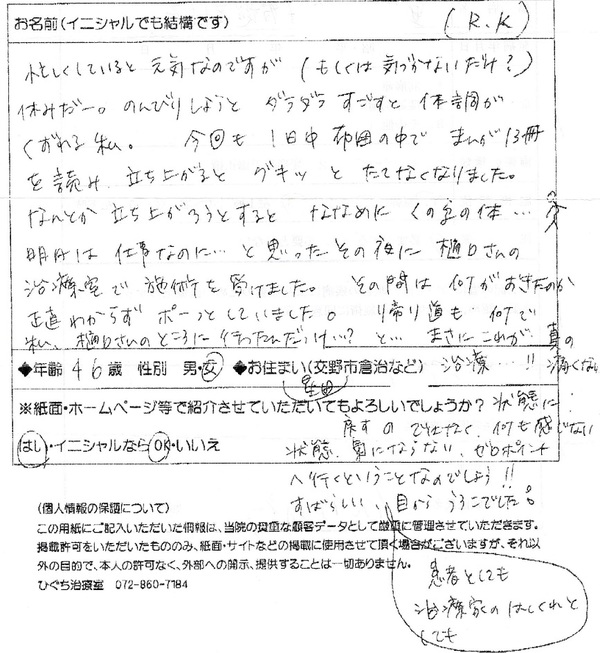 お名前(イニシャルでも結構です) (R.K)
忙しくしていると 元気なのですが (もしくは気づかないだけ?)
休みだー。のんびりしようと ダラダラ すごすと 体調が
くずれる私。 今回も 1日中 布団の中で まんが13冊
を読み 立ち上がると グキッ と たてなくなりました。
なんとか 立ち上がろうとすると ななめに くの字の体…
明日は 仕事なのに… と思った その夜に 樋口さんの
治療室で 施術を 受けました。 その時は 何がおきたのか
正直 わからず ボーっとしていました。 帰り道も 何で
私、樋口さんのところに 行ったんだっけ…? と… まさに これが 真の
◆年齢 46歳 性別 男・女 ◆お住まい(交野市倉治など) 治療…!! 痛くない
星田
※紙面・ホームページ等で紹介させていただいてもよろしいでしょうか? 状態に
戻す のではなく、何も感じない
はい・イニシャルならOK・いいえ 状態、気にならない、ゼロポイント
へ行くということなのでしょう!!
すばらしい、目から うろこでした。
(個人情報の保護について)
この用紙にご記入いただいた個報は、当院の貴重な顧客データとして厳重に管理させていただきます。
掲載許可をいただいたもののみ、紙面・サイトなどの掲載に使用させて頂く場合がございますが、それ以
外の目的で、本人の許可なく、外部への開示、提供することは一切ありません。
ひぐち治療室 072-860-7184
患者としても
治療家のはしくれと
しても